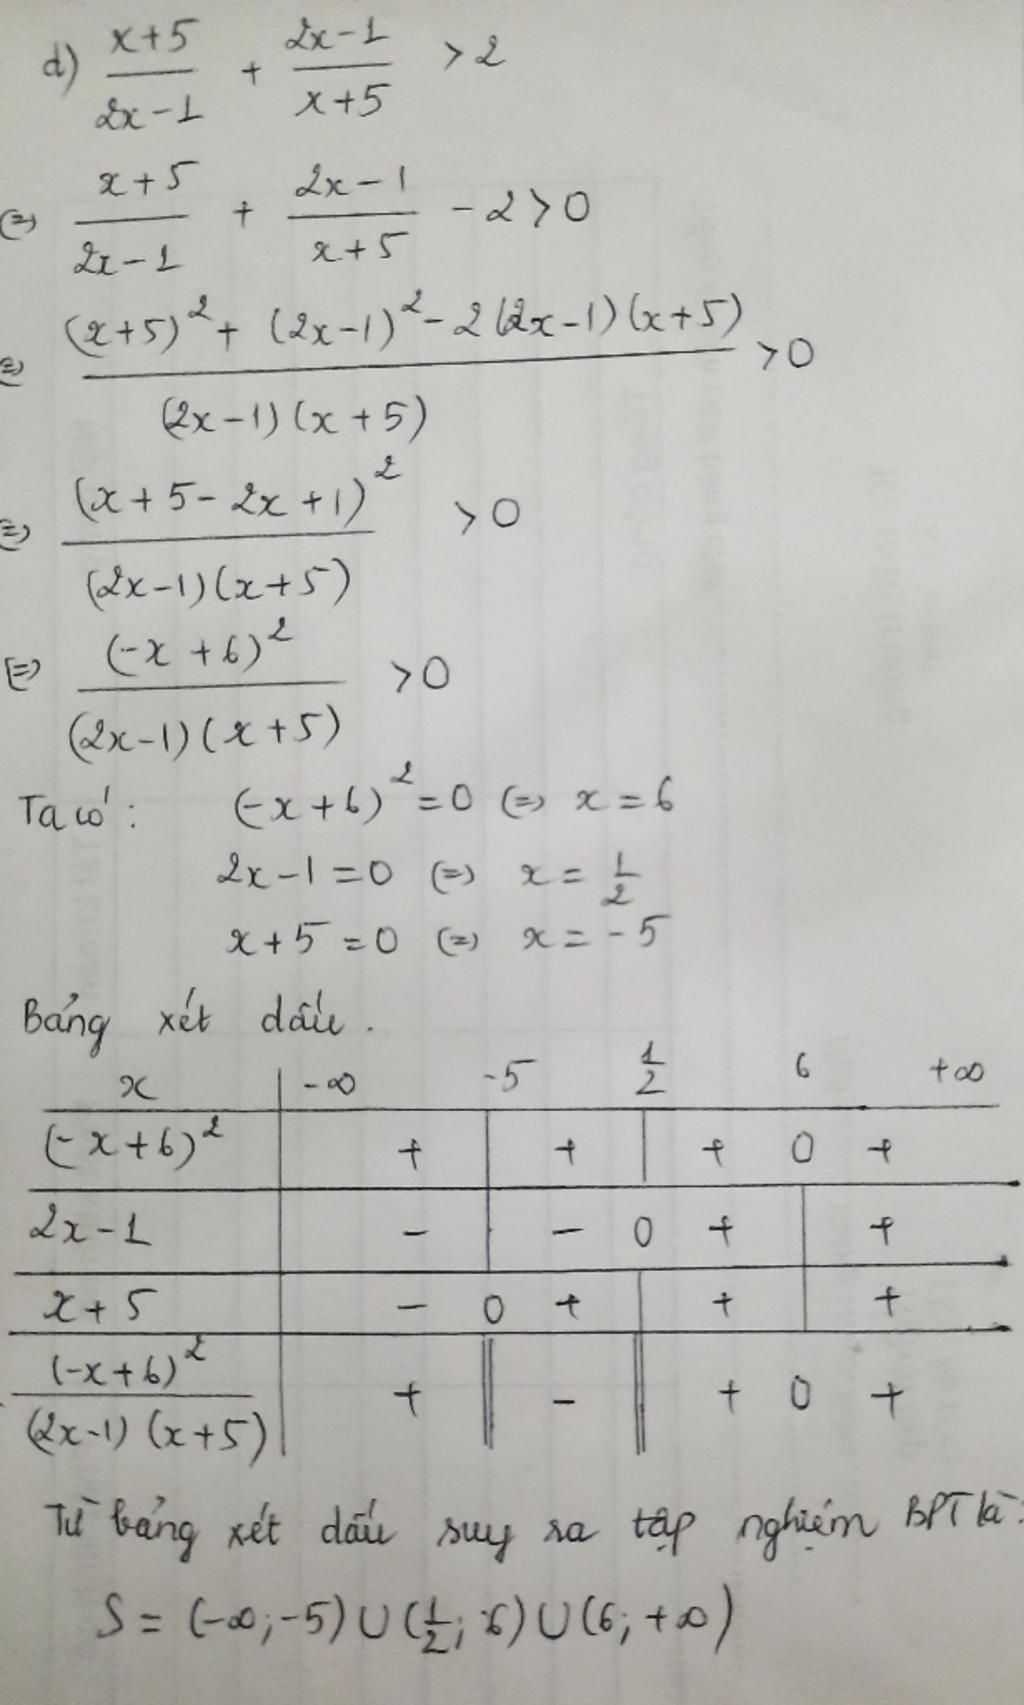 d) \frac{x+5}{2x-1} + \frac{2x-1}{x+5} > 2
(=) \frac{x+5}{2x-1} + \frac{2x-1}{x+5} - 2 > 0
(=) \frac{(x+5)^2 + (2x-1)^2 - 2(2x-1)(x+5)}{(2x-1)(x+5)} > 0
(=) \frac{(x+5-2x+1)^2}{(2x-1)(x+5)} > 0
(=) \frac{(-x+6)^2}{(2x-1)(x+5)} > 0
Ta có: (-x+6)^2 = 0 (=) x = 6
2x-1 = 0 (=) x = \frac{1}{2}
x+5 = 0 (=) x = -5
Bảng xét dấu.
x | -∞ -5 \frac{1}{2} 6 +∞
(-x+6)^2 | + | + | + 0 +
2x-1 | - | - 0 + | +
x+5 | - 0 + | + | +
\frac{(-x+6)^2}{(2x-1)(x+5)} | + || - || + 0 +
Từ bảng xét dấu suy ra tập nghiệm BPT là:
S = (-∞; -5) ∪ (\frac{1}{2}; 6) ∪ (6; +∞)